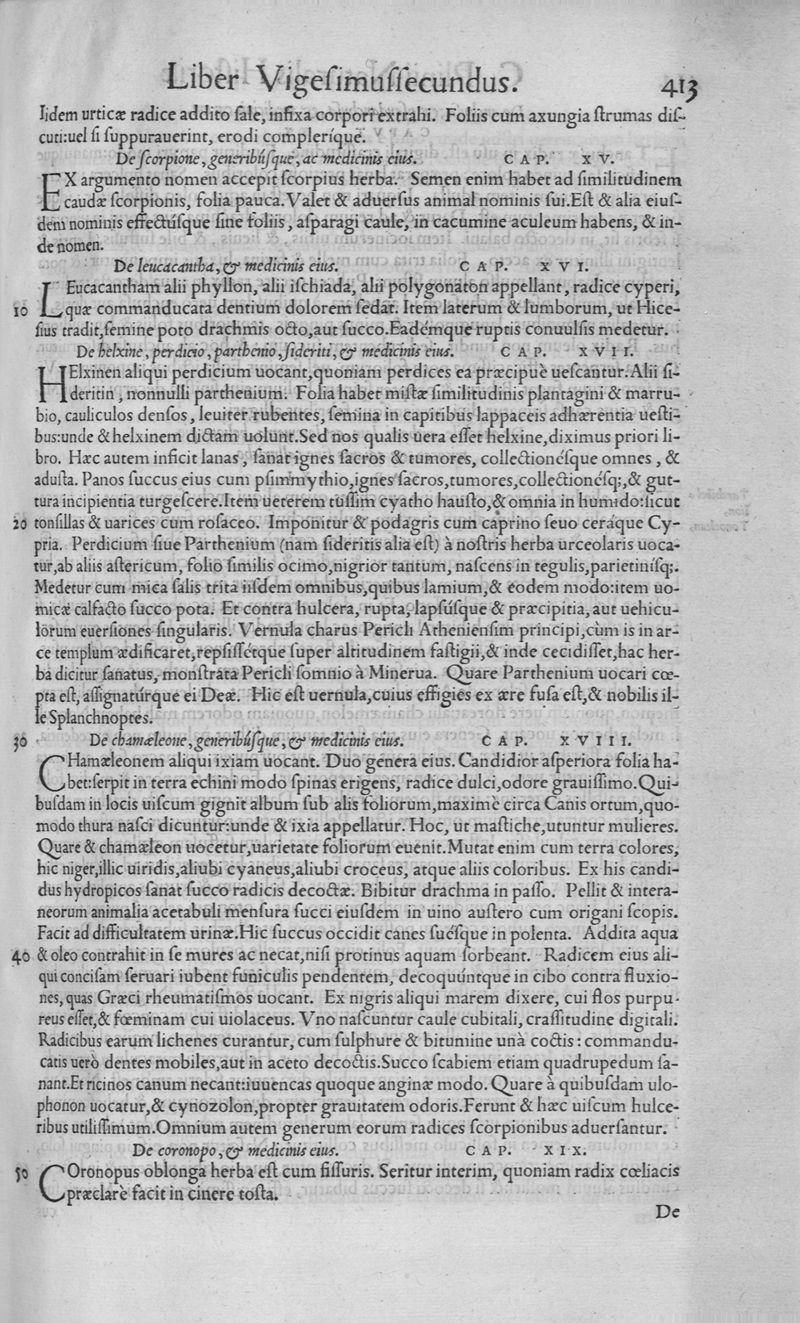 Liber Vigeſimuſſecundus. 413
Iidem urticæ radice addito ſale, infixa corpori extrahi. Foliis cum axungia ſtrumas diſ-
cuti:uel ſi ſuppurauerint, erodi compleríque.
De ſcorpione, generibúſque, ac medicinis eius. CAP. XV.
EX argumento nomen accepit ſcorpius herba. Semen enim habet ad ſimilitudinem
caudæ ſcorpionis, folia pauca. Valet & aduerſus animal nominis ſui. Eſt & alia eiuſ-
dem nominis effectúſque ſine foliis, aſparagi caule, in cacumine aculeum habens, & in-
de nomen.
De leucacantha, & medicinis eius. CAP. XVI.
LEucacantham alii phyllon, alii iſchiada, alii polygonaton appellant, radice cyperi,
10 quæ commanducata dentium dolorem ſedat. Item laterum & lumborum, ut Hice-
ſius tradit, ſemine poto drachmis octo, aut ſucco. Eadémque ruptis conuulſis medetur.
De helxine, perdicio, parthenio, ſideriti, & medicinis eius. CAP. XVII.
HElxinen aliqui perdicium uocant, quoniam perdices ea præcipuè ueſcantur. Alii ſi-
deritin, nonnulli parthenium. Folia habet miſtæ ſimilitudinis plantagini & marru-
bio, cauliculos denſos, leuiter rubentes, ſemina in capitibus lappaceis adhærentia ueſti-
bus:unde & helxinem dictam uolunt. Sed nos qualis uera eſſet helxine, diximus priori li-
bro. Hæc autem inficit lanas, ſanat ignes ſacros & tumores, collectionéſque omnes, &
aduſta. Panos ſuccus eius cum pſimmythio, ignes ſacros, tumores, collectionéſq;, & gut-
tura incipientia turgeſcere. Item ueterem tuſſim cyatho hauſto, & omnia in humido:ſicut
20 tonſillas & uarices cum roſaceo. Imponitur & podagris cum caprino ſeuo ceráque Cy-
pria. Perdicium ſiue Parthenium (nam ſideritis alia eſt) à noſtris herba urceolaris uoca-
tur, ab aliis aſtericum, folio ſimilis ocimo, nigrior tantum, naſcens in tegulis, parietiniſq;.
Medetur cum mica ſalis trita iiſdem omnibus, quibus lamium, & eodem modo:item uo-
micæ calfacto ſucco pota. Et contra hulcera, rupta, lapſúſque & præcipitia, aut uehicu-
lorum euerſiones ſingularis. Vernula charus Pericli Athenienſim principi, cùm is in ar-
ce templum ædificaret, repſiſſétque ſuper altitudinem faſtigii, & inde cecidiſſet, hac her-
ba dicitur ſanatus, monſtrata Pericli ſomnio à Minerua. Quare Parthenium uocari cœ-
pta eſt, aſſignatúrque ei Deæ. Hic eſt uernula, cuius effigies ex ære fuſa eſt, & nobilis il-
le Splanchnoptes.
30 De chamæleone, generibúſque, & medicinis eius. CAP. XVIII.
CHamæleonem aliqui ixiam uocant. Duo genera eius. Candidior aſperiora folia ha-
bet:ſerpit in terra echini modo ſpinas erigens, radice dulci, odore grauiſſimo. Qui-
buſdam in locis uiſcum gignit album ſub alis foliorum, maximè circa Canis ortum, quo-
modo thura naſci dicuntur:unde & ixia appellatur. Hoc, ut maſtiche, utuntur mulieres.
Quare & chamæleon uocetur, uarietate foliorum euenit. Mutat enim cum terra colores,
hic niger, illic uiridis, aliubi cyaneus, aliubi croceus, atque aliis coloribus. Ex his candi-
dus hydropicos ſanat ſucco radicis decoctæ. Bibitur drachma in paſſo. Pellit & intera-
neorum animalia acetabuli menſura ſucci eiuſdem in uino auſtero cum origani ſcopis.
Facit ad difficultatem urinæ. Hic ſuccus occidit canes ſuéſque in polenta. Addita aqua
40 & oleo contrahit in ſe mures ac necat, niſi protinus aquam ſorbeant. Radicem eius ali-
qui conciſam ſeruari iubent funiculis pendentem, decoquúntque in cibo contra fluxio-
nes, quas Græci rheumatiſmos uocant. Ex nigris aliqui marem dixere, cui flos purpu-
reus eſſet, & fœminam cui uiolaceus. Vno naſcuntur caule cubitali, craſſitudine digitali.
Radicibus earum lichenes curantur, cum ſulphure & bitumine unà coctis: commandu-
catis uerò dentes mobiles, aut in aceto decoctis. Succo ſcabiem etiam quadrupedum ſa-
nant. Et ricinos canum necant:iuuencas quoque anginæ modo. Quare à quibuſdam ulo-
phonon uocatur, & cynozolon, propter grauitatem odoris. Ferunt & hæc uiſcum hulce-
ribus utiliſſimum. Omnium autem generum eorum radices ſcorpionibus aduerſantur.
De coronopo, & medicinis eius. CAP. XIX.
50 COronopus oblonga herba eſt cum fiſſuris. Seritur interim, quoniam radix cœliacis
præclarè facit in cinere toſta.
De